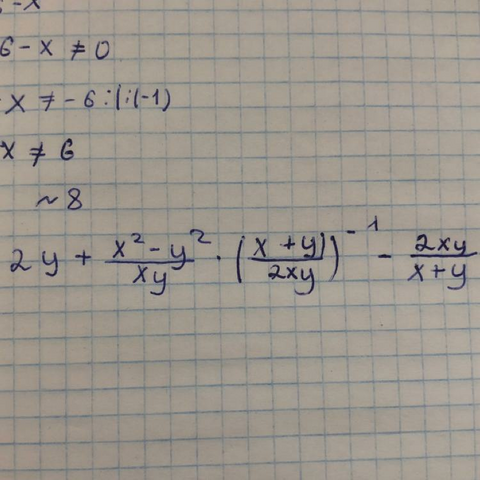 6-x
6-x ≠ 0
-x ≠ -6 :|:(-1)
x ≠ 6
~8
2y + \frac{x^2-y^2}{xy} \cdot \left(\frac{x+y}{2xy}\right)^{-1} - \frac{2xy}{x+y}